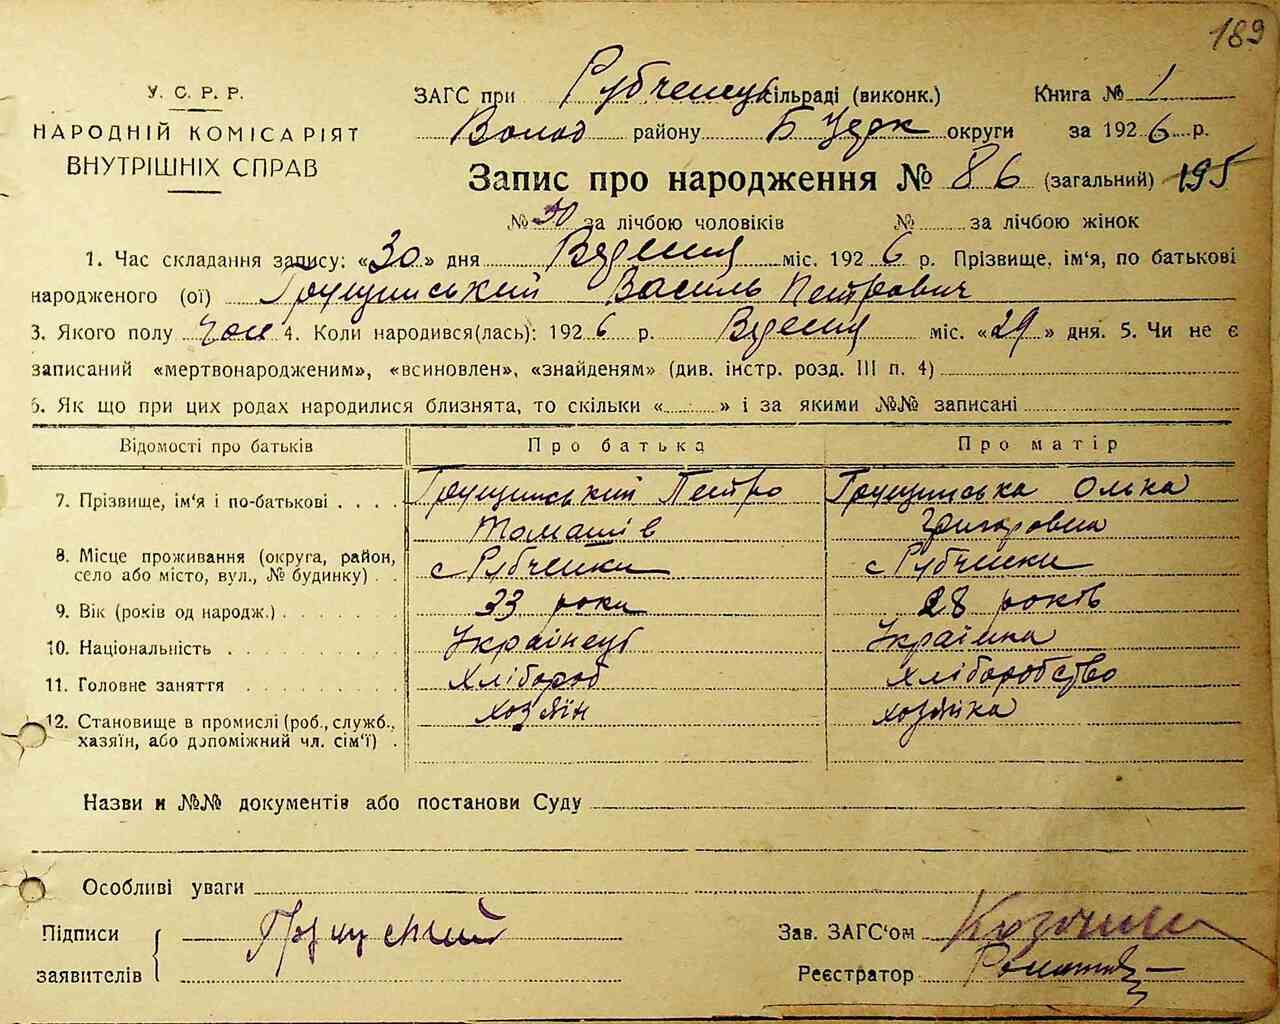 189
У. С. Р. Р.
НАРОДНІЙ КОМІСАРІЯТ
ВНУТРІШНІХ СПРАВ
ЗАГС при Рубченськ сільраді (виконк.) Книга № 1
Волод району Б Церк округи за 1926 р.
Запис про народження № 86 (загальний) 195
№ 30 за лічбою чоловіків № за лічбою жінок
1. Час складання запису: «30» дня Вересня міс. 1926 р. Прізвище, ім'я, по батькові
народженого (ої) Грущинський Василь Петрович
3. Якого полу Чол 4. Коли народився(лась): 1926 р. Вересня міс. «29» дня. 5. Чи не є
записаний «мертвонародженим», «всиновлен», «знайденям» (див. інстр. розд. III п. 4)
6. Як що при цих родах народилися близнята, то скільки « » і за якими №№ записані
Відомості про батьків Про батька Про матір
7. Прізвище, ім'я і по-батькові . . . . Грущинський Петро Грущинська Олька
Томашів Григоровна
8. Місце проживання (округа, район,
село або місто, вул., № будинку) . . с Рубченки с Рубченки
9. Вік (років од народж.) 33 роки 28 років
10. Національність Українець Українка
11. Головне заняття Хлібороб хліборобство
12. Становище в промислі (роб., служб., хозяїн хозяйка
хазяїн, або допоміжний чл. сім'ї) .
Назви и №№ документів або постанови Суду
Особливі уваги
Підписи
заявителів
Зав. ЗАГС'ом
Реєстратор